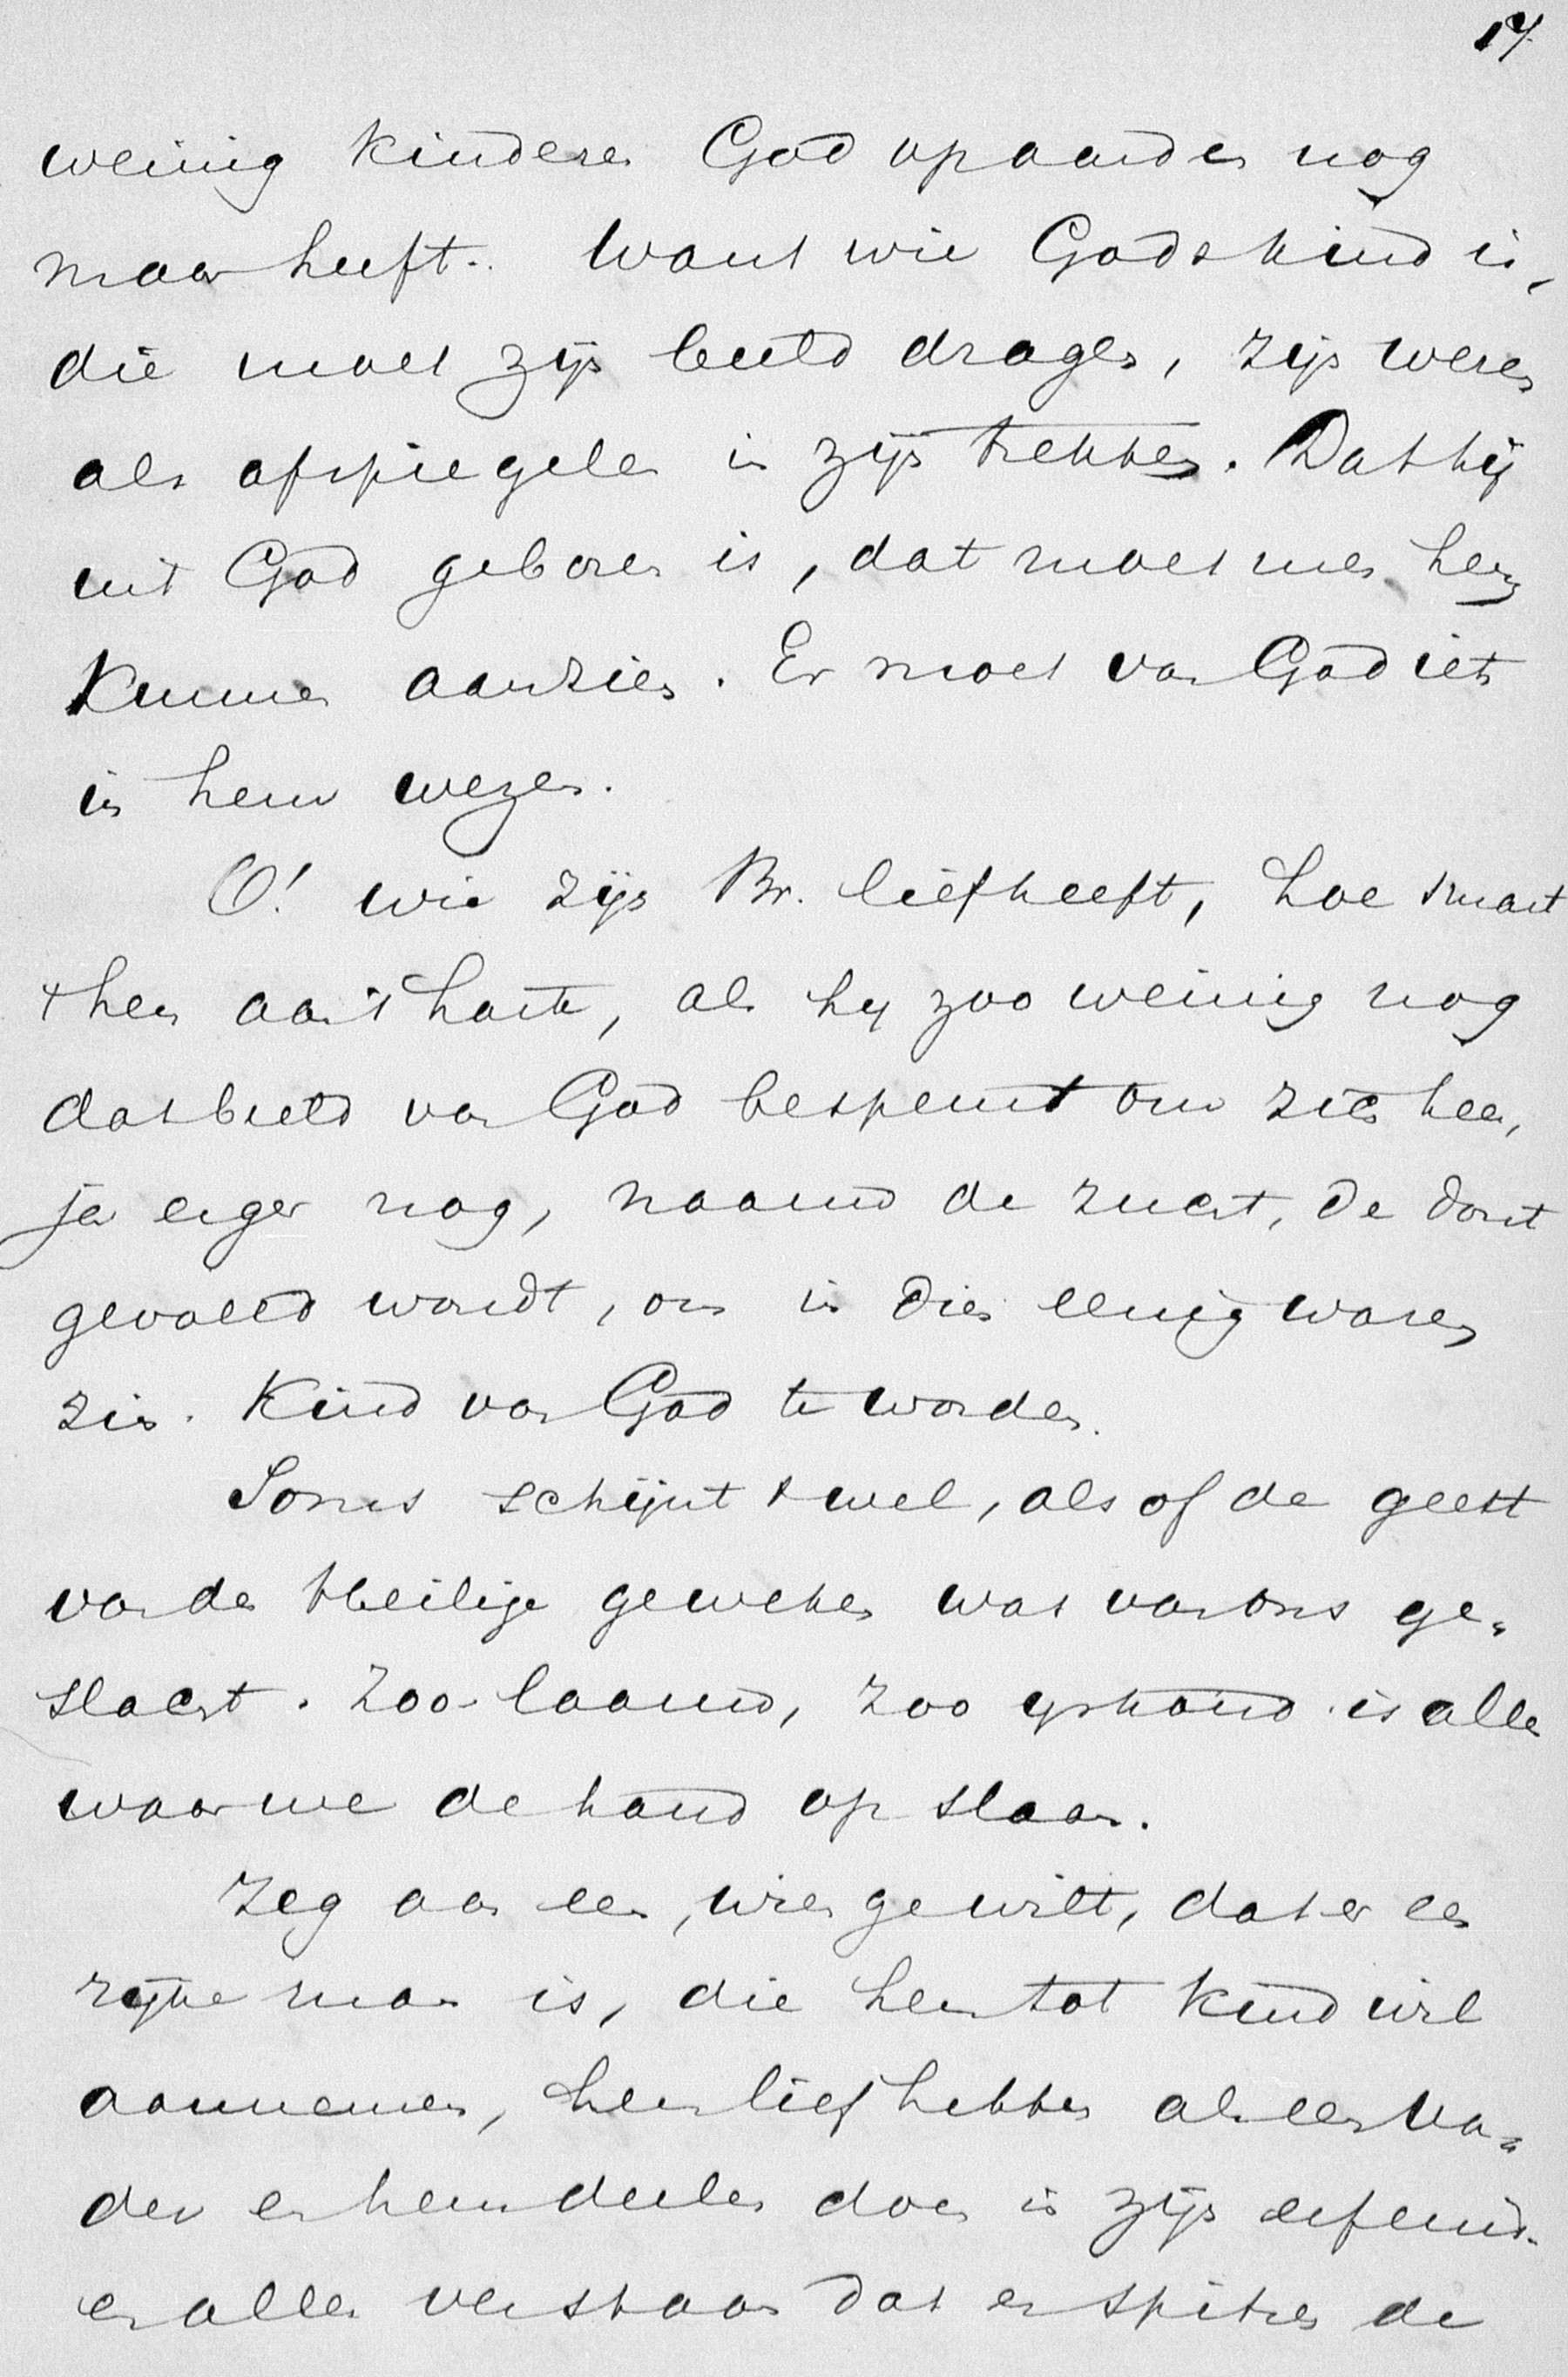 17.
weinig kinderen God op aarde nog
maar heeft. Want wie Gods kind is,
die moet zijn beeld dragen, zijn wezen
als afspiegelen in zijn trekken. Dat hij
uit God geboren is, dat moet men hem
kunnen aanzien. Er moet van God iets
in hem wezen.
O! wie zijn Br. liefheeft, hoe smart
't hem aan 't harte, als hij zoo weinig nog
dat beeld van God bespeurt om zich heen,
ja erger nog, naauw de zucht, de dorst
gevoeld wordt, om in dien eenig waren
zin Kind van God te worden.
Soms schijnt 't wel, alsof de geest
van de Heilige geweken was van ons ge-
slacht. Zoo laauw, zoo ijskoud is alles
waar we de hand op slaan.
Zeg aan een, wien ge wilt, dat er een
rijke man is, die hem tot kind wil
aannemen, hem lief hebben als een va-
der en hem deelen doen in zijn erfenis
en allen verstaan dat en spitsen de